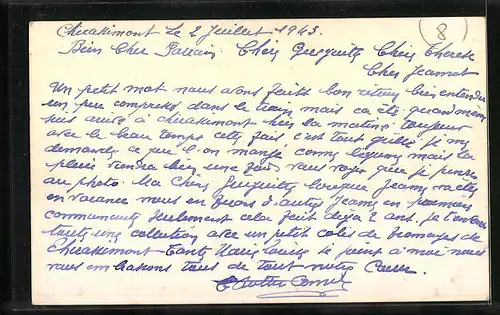 Chirakimont Le 2 Juillet 1945.
8
Bien Cher Parrain. Chère Guguitte Chère Therese
Cher Jeannot
Un petit mot nous avons faits bon retour bien entendu
un peu compressé dans le train mais ca été quand même
suis arrivé à chiraskimont hier la matiné toujours
avec le beau temps cette fois, c'est tout grillé je me
demande ce que l'on mange comme legumes mais la
pluie viendra bien une fois vous voyez que je pense
au photo. Ma Chère Guguitte lorsque Jeanny
en vacance nous en ferons d'autres Jeanny en premiere
communiante seulement cela fait deja 2 ans. Je
une collection avec un petit colis de fromages de
Chiraskimont Tante Marie Louise se joint à moi nous
vous embrassons tous de tout notre Cœur.